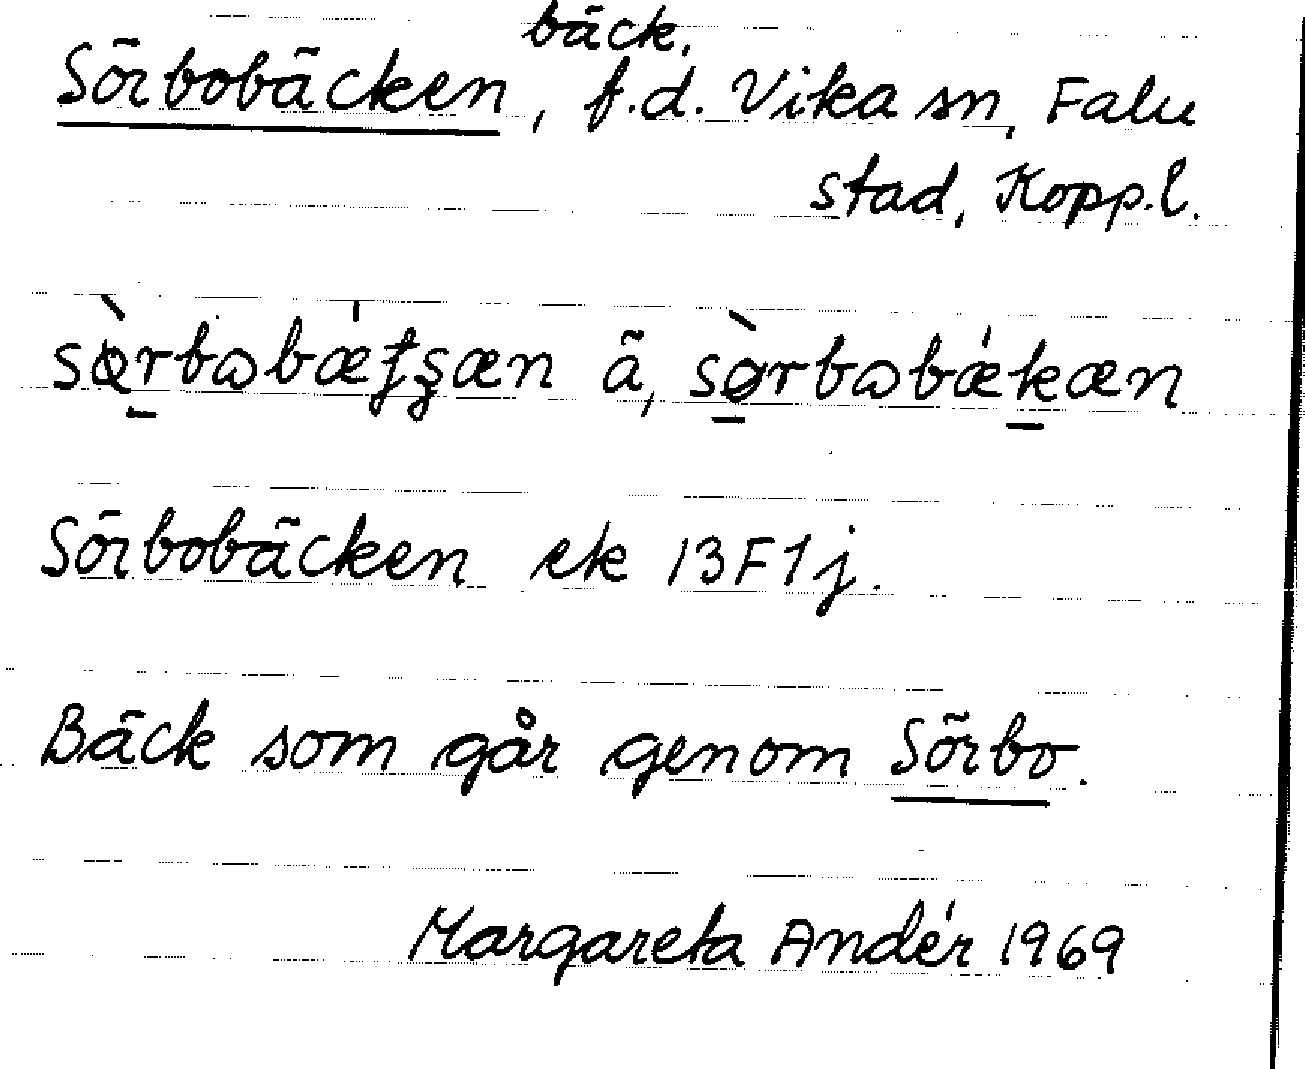 bäck.
Sörbobäcken, f.d. Vika sn, Falu
stad, Kopp.l.
Sörbobäcken ek 13F1j.
Bäck som går genom Sörbo.
Margareta Andér 1969